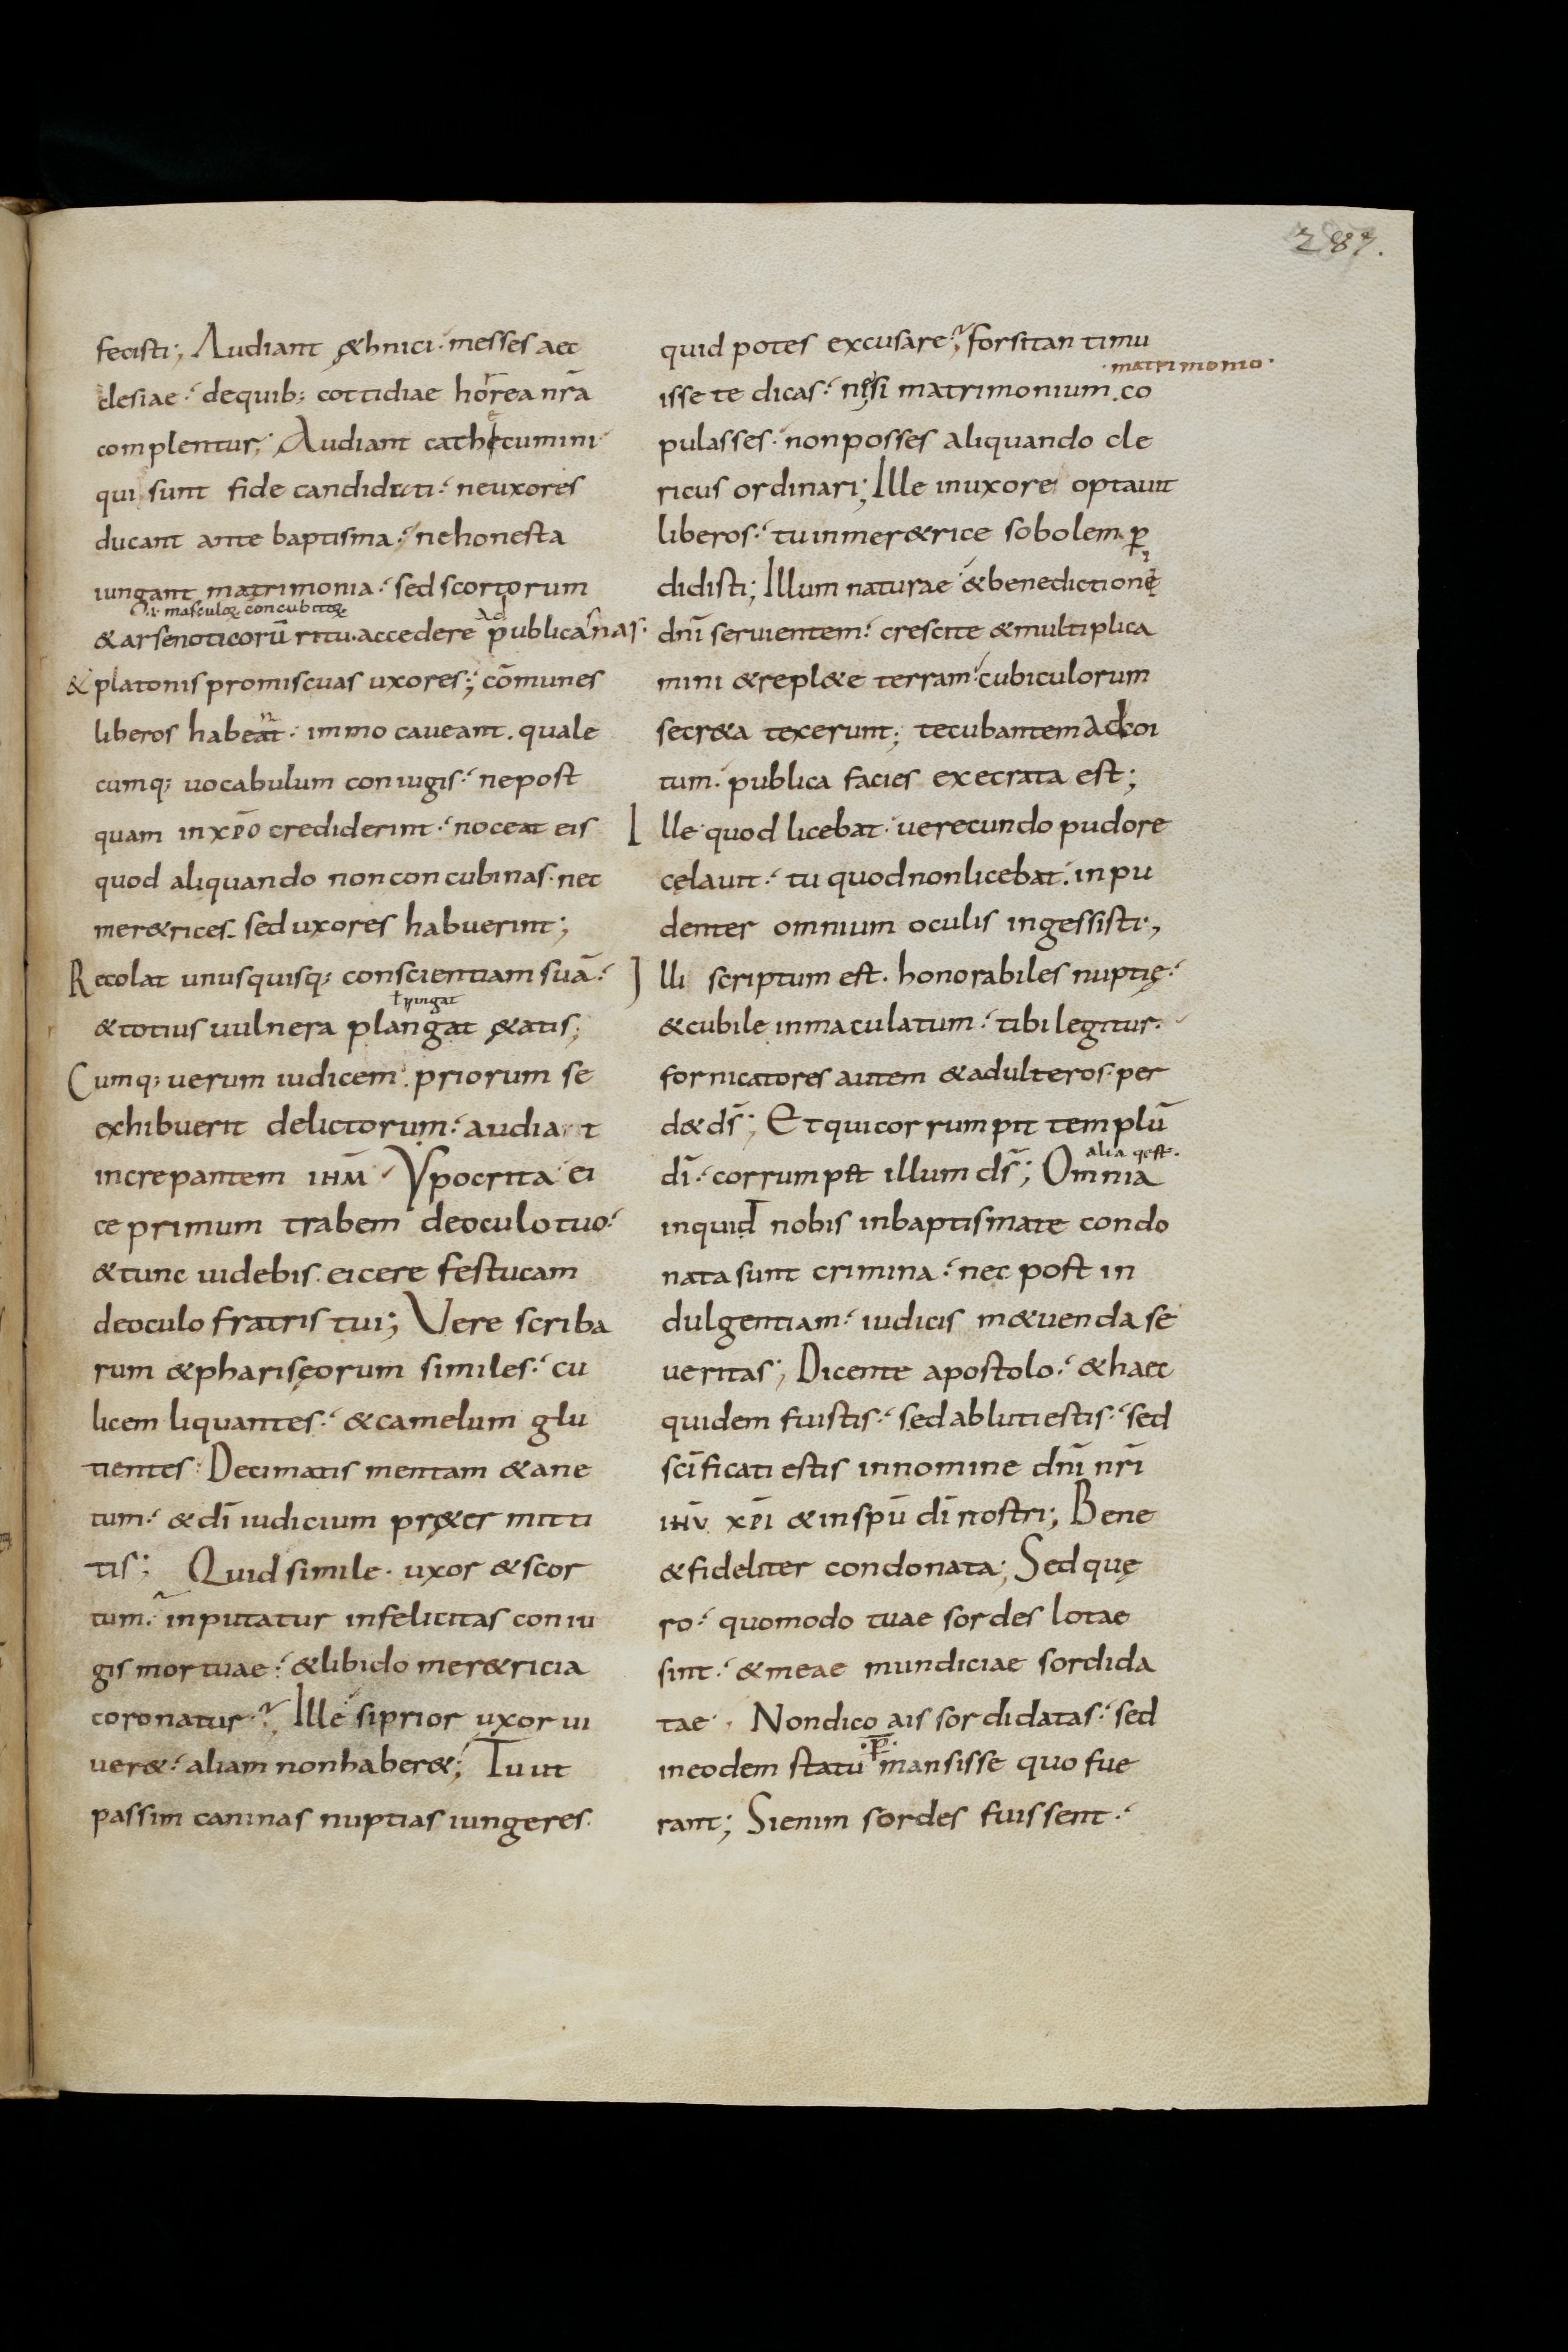 287.
fecisti; Audiant &hnici · messes aec
clesiae : dequib; cottidiae horrea nr̄a
complentur; Audiant cathecumini
qui sunt fide candidati : neuxores
ducant ante baptisma : nehonesta
iungant matrimonia : sed scortorum
masculoꝝ concubitoꝝ
&arsenoticorū ritu · accedere Ad publicas nas ·
& platonis promiscuas uxores; cōmunes
liberos habeant · immo caveant · quale
cumq; uocabulum coniugis : nepost
quam inxp̄o crediderint : noceat eis
quod aliquando nonconcubinas · nec
mer&rices · sed uxores habuerint;
Recolat unusquisq; conscientiam suā :
ł tyungat
&totius uulnera plangat &atis;
Cumq; uerum iudicem · priorum se
exhibuerit delictorum : audiat
increpantem ihm̄ · Ypocrita ei
ce primum trabem deoculo tuo :
&tunc uidebis · eicere festucam
deoculo fratris tui; Vere scriba
rum &phariseorum similes : cu
licem liquantes : &camelum glu
tientes : Decimatis mentam &ane
tum : &dī iudicium pr&er mitti
tis; Quid simile · uxor &scor
tum : inputatur infelicitas coniu
gis mortuae : &libido mer&ricia
coronatur : Ille siprior uxor ui
uer& : aliam nonhaber&; Tu ut
passim caninas nuptias iungeres ·
quid potes excusare; forsitan timu
· matrimonio ·
isse te dicas : nisi matrimonium · co
pulasses · nonposses aliquando cle
ricus ordinari; Ille inuxore optauit
liberos : tu inmer&rice sobolem ꝑ
didisti; Illum naturae &benedictione
dn̄i seruientem : crescite &multiplica
mini &repl&e terram : cubiculorum
secr&a texerunt; te cubantem Ad coi
tum · publica facies execrata est;
Ille quod licebat · uerecundo pudore
celauit : tu quodnonlicebat · inpu
denter omnium oculis ingessisti;
Illi scriptum est · honorabiles nuptię :
&cubile inmaculatum : tibi legitur ·
fornicatores autem &adulteros · per
d&ds̄; Et quicorrumpit templū
alia qest ·
dī · corrumpet illum ds̄; Omnia
inquit nobis inbaptismate condo
nata sunt crimina : nec post in
dulgentiam : iudicis m&uenda se
ueritas; Dicente apostolo : &haec
quidem fuistis : sed ablutiestis : sed
sc̄ificati estis innomine dn̄i nr̄i
ihū xp̄i &inspū dī nostri; Bene
&fideliter condonata; Sed quę
ro : quomodo tuae sordes lotae
sint : &meae mundiciae sordida
tae · Nondico ais sordidatas : sed
ineodem statu ꝑmansisse quo fue
rant; Sienim sordes fuissent :